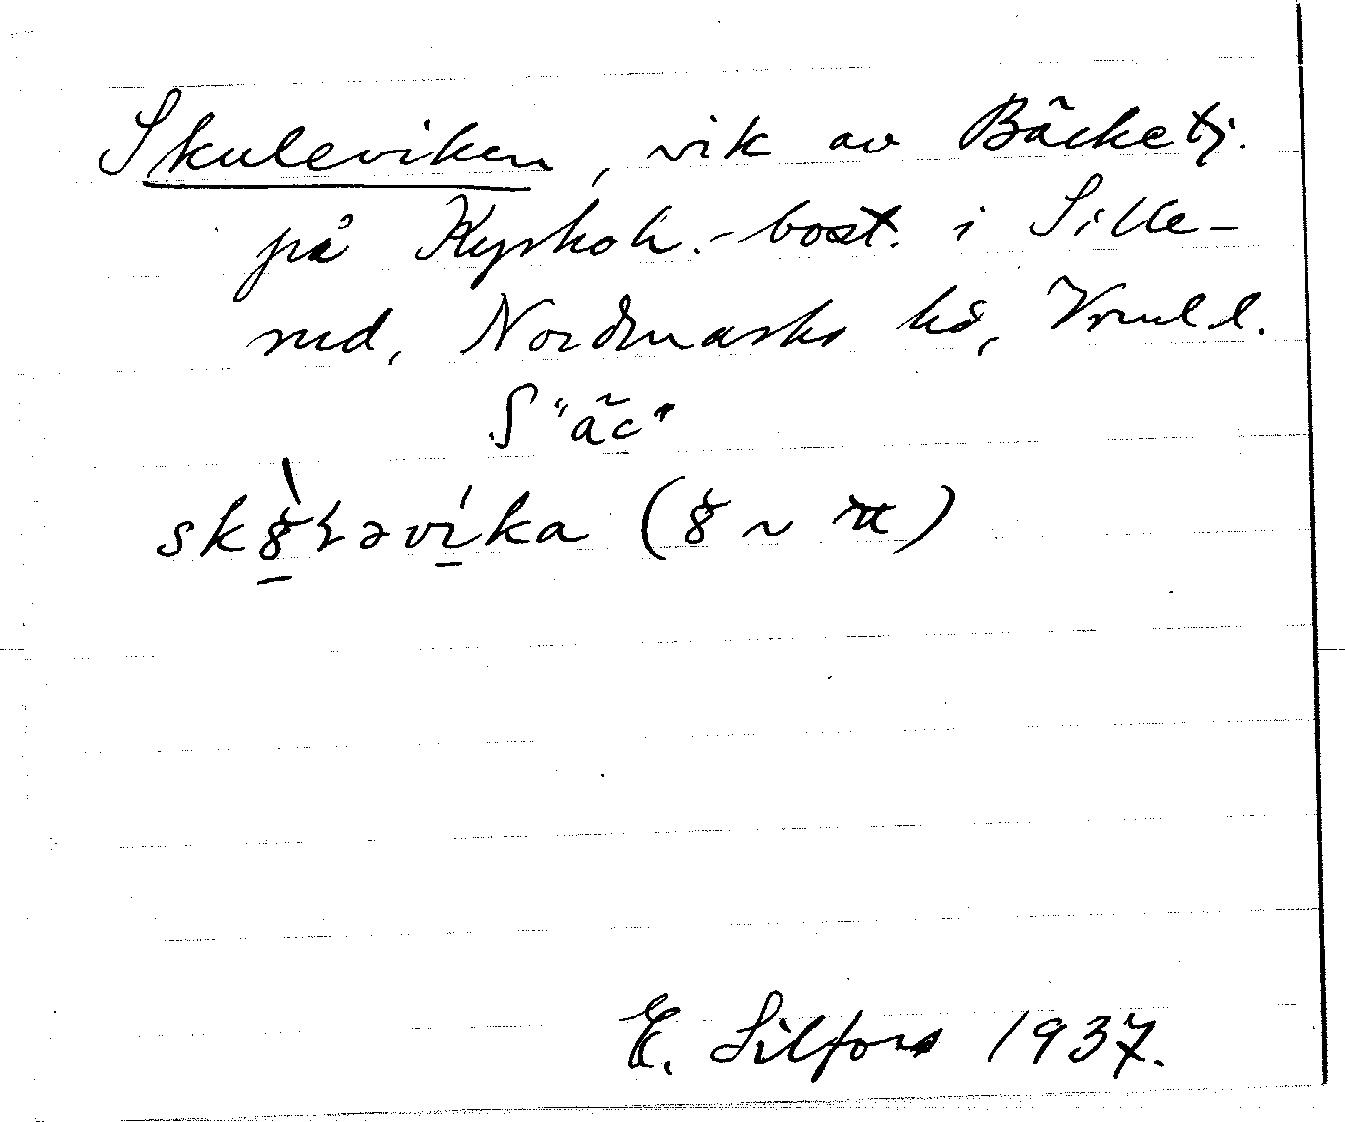 Skuleviken, vik av Bäcketj.
på Kyrkoh.-bost. i Sille-
rud, Nordmarks hd, Vrml l.
S "äc"
(
E. Silfors 1937.